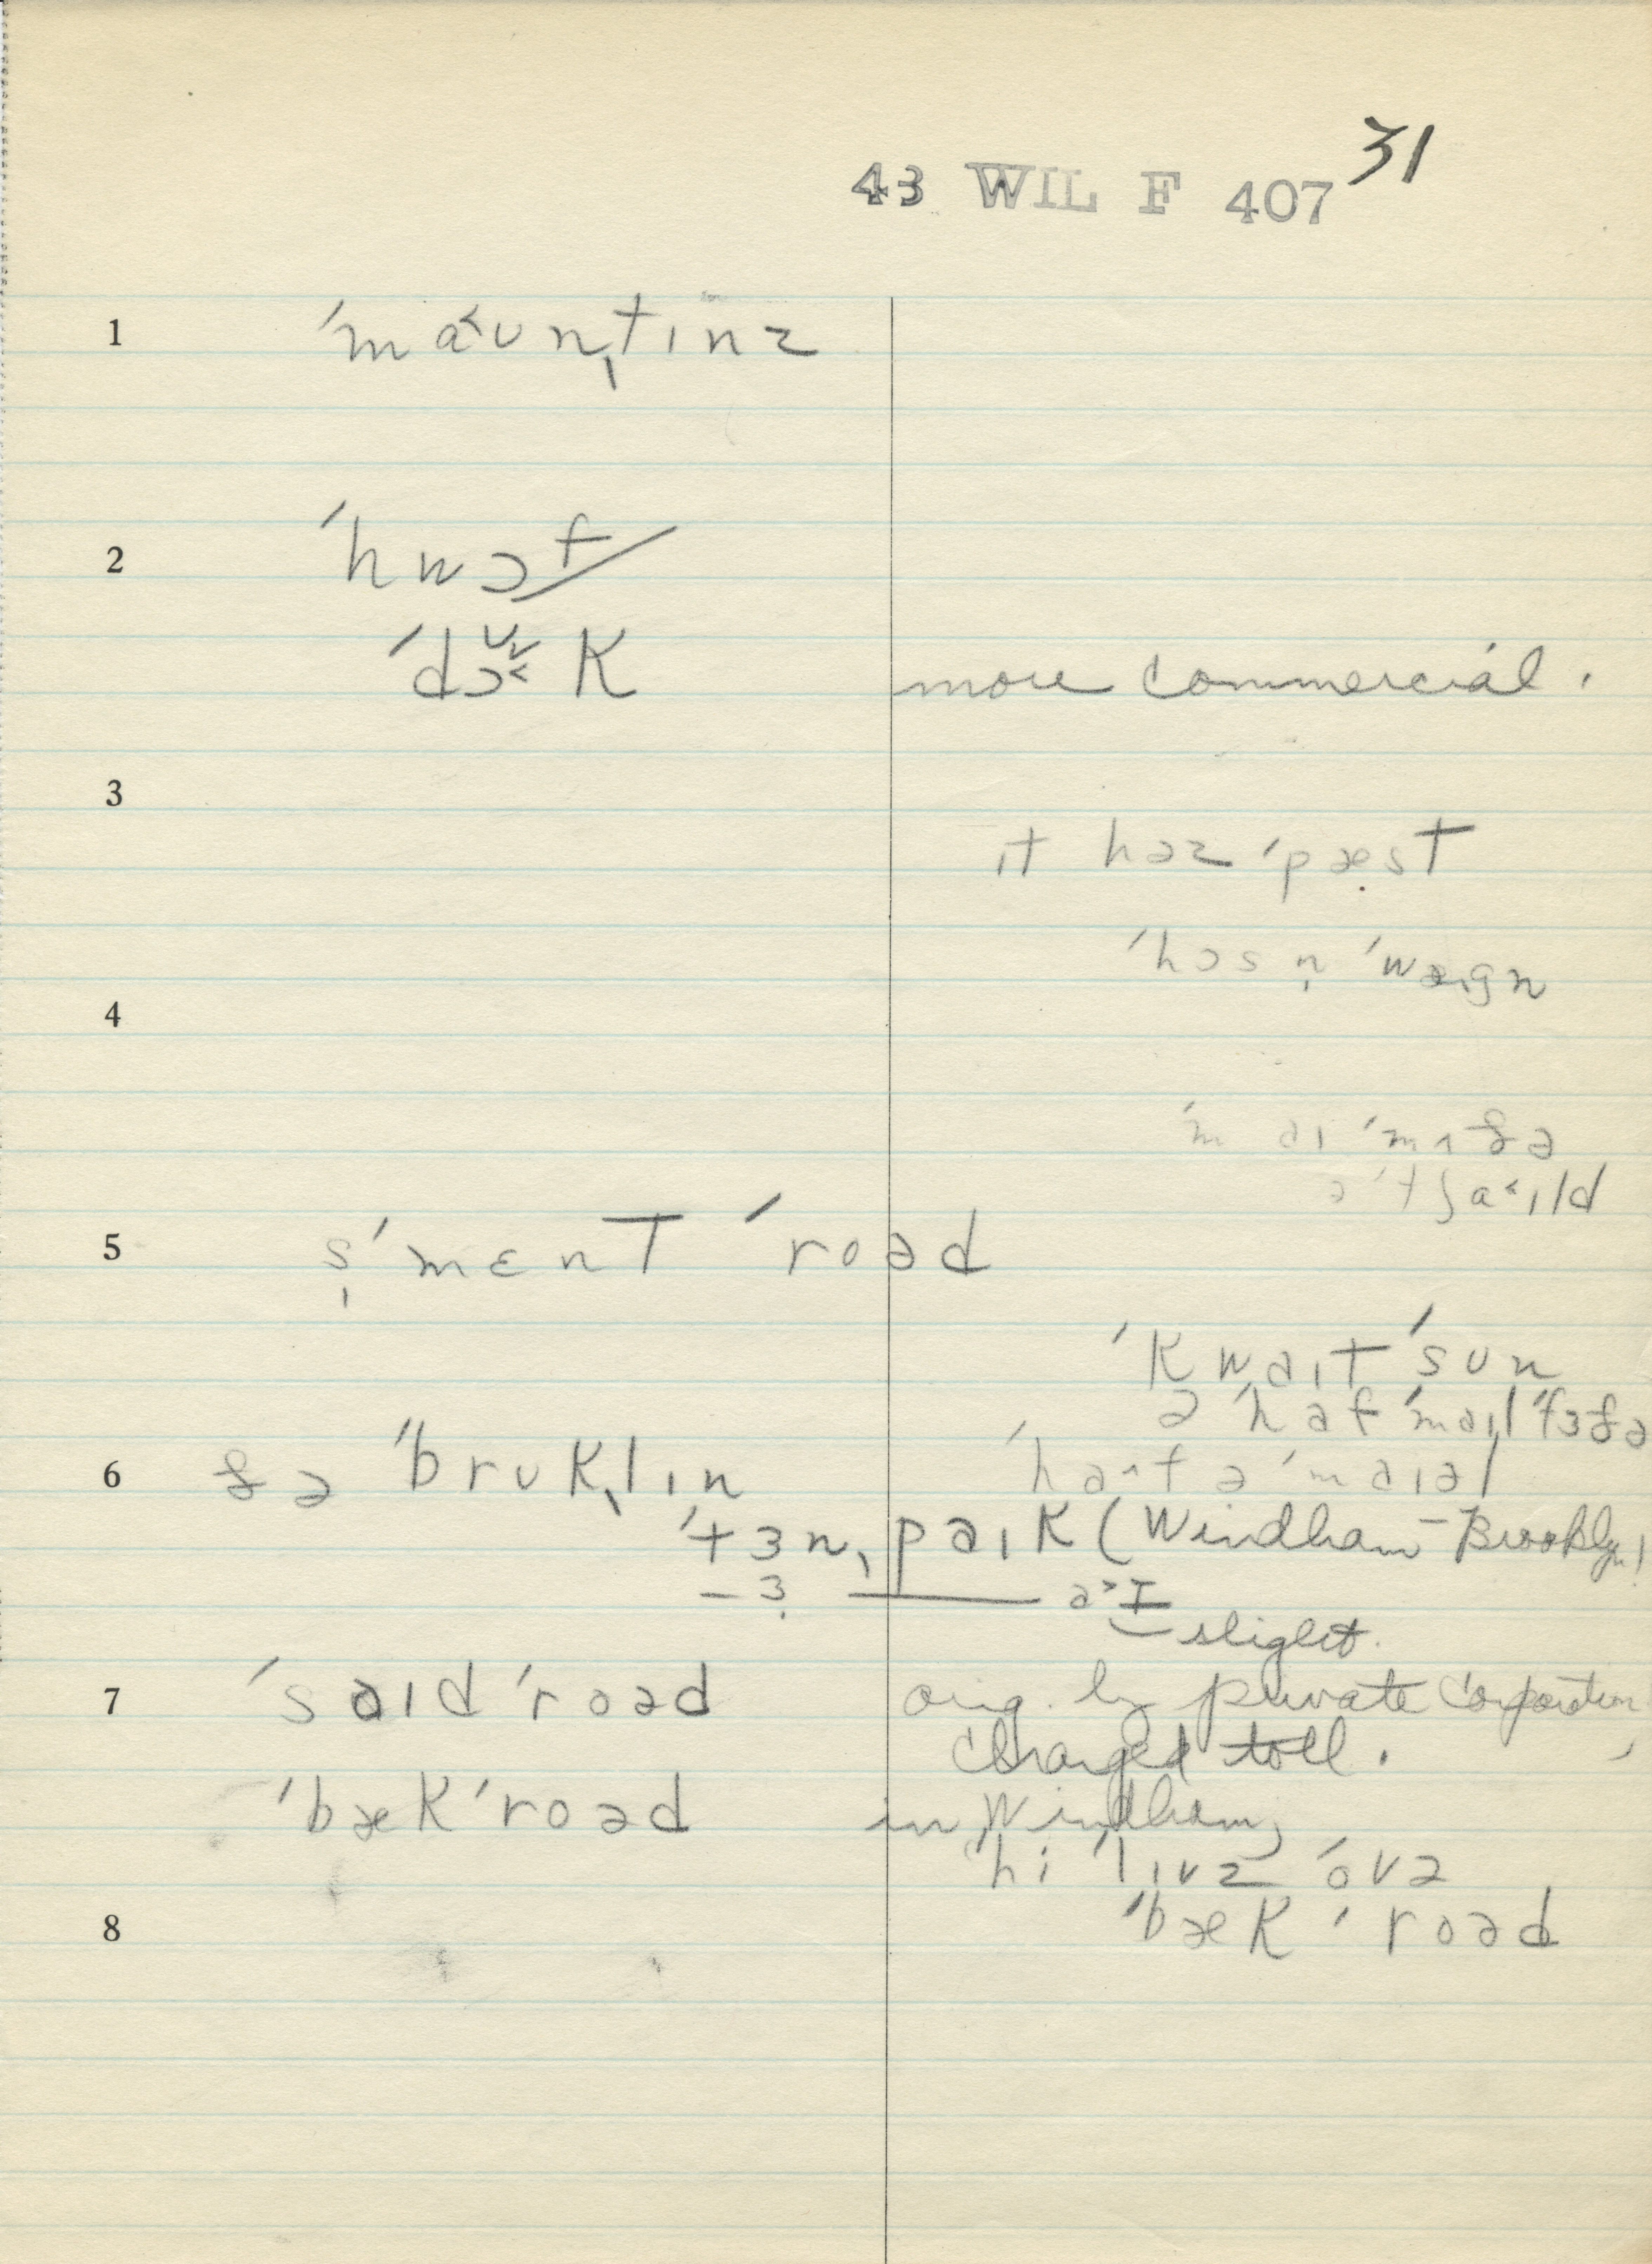 43 WIL F 407 31
1 ˈma˂ʊnˌtɪnz
2 ˈhwɔf
ˈdɔk more commercial.
3
ɪt həz ˈpæst
ˈhɔsn̩
4
ˈmʌðə
ə ˈtʃa˂ɪld
5 s̩ˈmɛnt ˈroəd
ˈkwaɪt ˈsun
ə ˈhaf ˈmaɪl ˈfɜðə
6 ðə ˈbrʊkˌlɪn
ˈtɜnˌpaɪk (Windham-Brooklyn)
slight.
7 ˈsaɪd ˈroəd orig. by private corporation,
charged toll.
ˈbæk ˈroəd in Windham,
hi ˈlɪvz ˈovə
8 ˈbæk ˈroəd